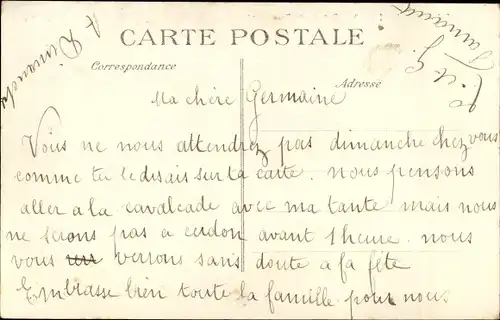 A Dimanche
CARTE POSTALE
Correspondance
Adresse
Ma chère Germaine
Vous ne nous attendrez pas dimanche chez vous
comme tu le disais sur ta carte. nous pensons
aller a la cavalcade avec ma tante mais nous
ne serons pas a cerdon avant 1 heure. nous
vous verrons sans doute a la fête
Embrasse bien toute la famille pour nous